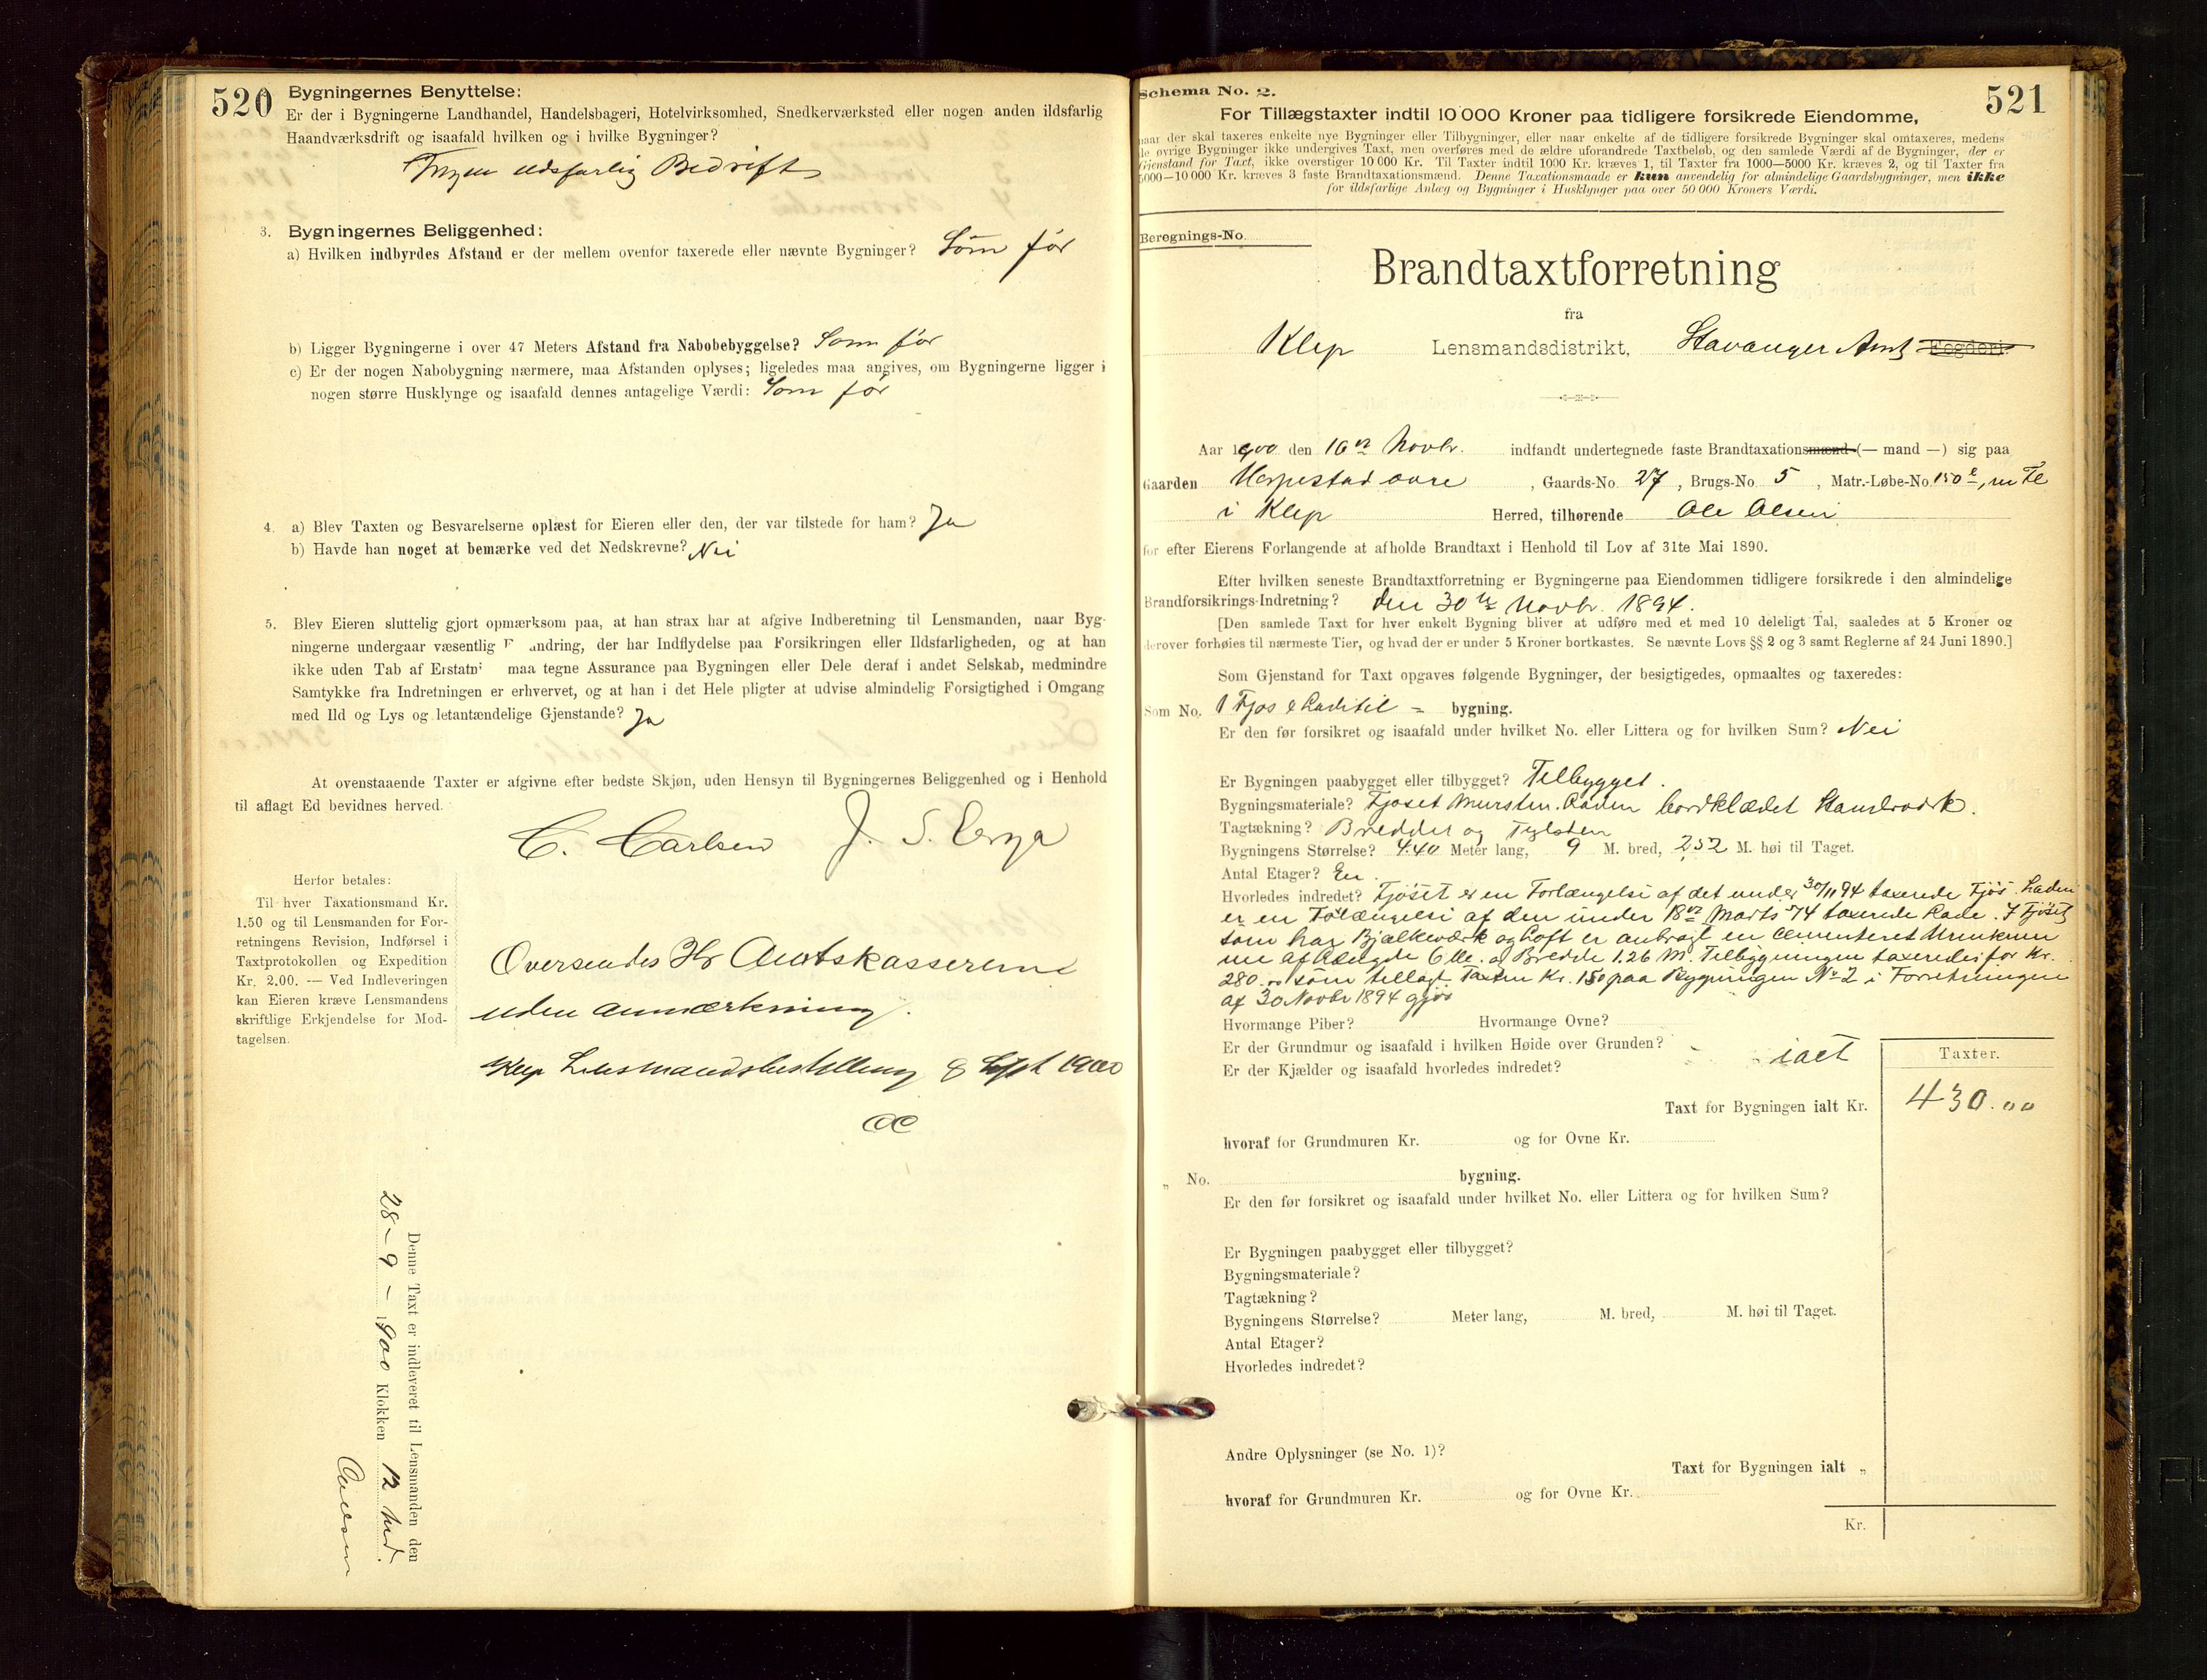 520
Bygningernes Benyttelse:
Er der i Bygningerne Landhandel, Handelsbageri, Hotelvirksomhed, Snedkerværksted eller nogen anden ildsfarlig
Haandværksdrift og isaafald hvilken og i hvilke Bygninger?
Ingen ildsfarlig Bedrift
3. Bygningernes Beliggenhed:
a) Hvilken indbyrdes Afstand er der mellem ovenfor taxerede eller nævnte Bygninger? Som før
b) Ligger Bygningerne i over 47 Meters Afstand fra Nabobebyggelse? Som før
c) Er der nogen Nabobygning nærmere, maa Afstanden oplyses; ligeledes maa angives, om Bygningerne ligger i
nogen større Husklynge og isaafald dennes antagelige Værdi: Som før
4. a) Blev Taxten og Besvarelserne oplæst for Eieren eller den, der var tilstede for ham? Ja
b) Havde han noget at bemærke ved det Nedskrevne? Nei
5. Blev Eieren sluttelig gjort opmærksom paa, at han strax har at afgive Indberetning til Lensmanden, naar Byg-
ningerne undergaar væsentlig F andring, der har Indflydelse paa Forsikringen eller Ildsfarligheden, og at han
ikke uden Tab af Erstatn maa tegne Assurance paa Bygningen eller Dele deraf i andet Selskab, medmindre
Samtykke fra Indretningen er erhvervet, og at han i det Hele pligter at udvise almindelig Forsigtighed i Omgang
med Ild og Lys og letantændelige Gjenstande? Ja
At ovenstaaende Taxter er afgivne efter bedste Skjøn, uden Hensyn til Bygningernes Beliggenhed og i Henhold
til aflagt Ed bevidnes herved.
C. Carlsen J. S. Erga
Herfor betales:
Til hver Taxationsmand Kr.
1.50 og til Lensmanden for For-
retningens Revision, Indførsel i
Taxtprotokollen og Expedition
Kr. 2.00. — Ved Indleveringen
kan Eieren kræve Lensmandens
skriftlige Erkjendelse for Mod-
tagelsen.
Oversendes Hr Amtskassereren
uden Anmærkning.
Klep Lensmandsbestilling 8 Sept 1900
Denne Taxt er indleveret til Lensmanden den
28 - 9 - 1900 Klokken 12 Md.
521
Schema No. 2.
For Tillægstaxter indtil 10 000 Kroner paa tidligere forsikrede Eiendomme,
naar der skal taxeres enkelte nye Bygninger eller Tilbygninger, eller naar enkelte af de tidligere forsikrede Bygninger skal omtaxeres, medens
de øvrige Bygninger ikke undergives Taxt, men overføres med de ældre uforandrede Taxtbeløb, og den samlede Værdi af de Bygninger, der er
Gjenstand for Taxt, ikke overstiger 10 000 Kr. Til Taxter indtil 1000 Kr. kræves 1, til Taxter fra 1000—5000 Kr. kræves 2, og til Taxter fra
5000—10 000 Kr. kræves 3 faste Brandtaxationsmænd. Denne Taxationsmaade er kun anvendelig for almindelige Gaardsbygninger, men ikke
for ildsfarlige Anlæg og Bygninger i Husklynger paa over 50 000 Kroners Værdi.
Beregnings-No.
Brandtaxtforretning
fra
Klep Lensmandsdistrikt, Stavanger Amt Fogderi.
Aar 1900 den 16de Novbr. indfandt undertegnede faste Brandtaxationsmænd (— mand —) sig paa
Gaarden Horpestad øvre, Gaards-No. 27, Brugs-No. 5, Matr.-Løbe-No. 150
i Klep Herred, tilhørende Ole Olsen
for efter Eierens Forlangende at afholde Brandtaxt i Henhold til Lov af 31te Mai 1890.
Efter hvilken seneste Brandtaxtforretning er Bygningerne paa Eiendommen tidligere forsikrede i den almindelige
Brandforsikrings-Indretning? den 30te Novbr. 1894.
[Den samlede Taxt for hver enkelt Bygning bliver at udføre med et med 10 deleligt Tal, saaledes at 5 Kroner og
derover forhøies til nærmeste Tier, og hvad der er under 5 Kroner bortkastes. Se nævnte Lovs §§ 2 og 3 samt Reglerne af 24 Juni 1890.]
Som Gjenstand for Taxt opgaves følgende Bygninger, der besigtigedes, opmaaltes og taxeredes:
Som No. 1 Fjøs & Ladetil = bygning.
Er den før forsikret og isaafald under hvilket No. eller Littera og for hvilken Sum? Nei
Er Bygningen paabygget eller tilbygget? Tilbygget.
Bygningsmateriale? Fjøset Mursten. Laden bordklædet Standværk.
Tagtækning? Bredder og Teglsten
Bygningens Størrelse? 4.40 Meter lang, 9 M. bred, 2,52 M. høi til Taget.
Antal Etager? En.
Hvorledes indredet? Fjøset er en Forlængelse af det under 30/11 94 taxerede Fjøs. Laden
er en Forlængelse af den under 18de Marts 74 taxerede Lade. I Fjøset
som har Bjælkeværk og Loft er anbragt en cementeret Urinkum
me af Længde 6 M. og Bredde 1.26 M. Tilbygningen taxeredes for Kr.
280.00 som tillagt Taxten Kr. 150 paa Bygningen No 2 i Forretningen
af 30 Novbr 1894 gjør
Hvormange Piber? Hvormange Ovne?
Er der Grundmur og isaafald i hvilken Høide over Grunden?
Er der Kjælder og isaafald hvorledes indredet? ialt
Taxter.
Taxt for Bygningen ialt Kr. 430.00
hvoraf for Grundmuren Kr. og for Ovne Kr.
„ No. bygning.
Er den før forsikret og isaafald under hvilket No. eller Littera og for hvilken Sum?
Er Bygningen paabygget eller tilbygget?
Bygningsmateriale?
Tagtækning?
Bygningens Størrelse? Meter lang, M. bred, M. høi til Taget.
Antal Etager?
Hvorledes indredet?
Andre Oplysninger (se No. 1)?
Taxt for Bygningen ialt „
hvoraf for Grundmuren Kr. og for Ovne Kr.
Kr.